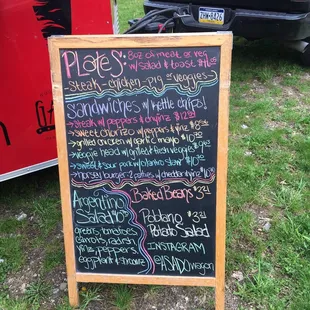 Plates: 8oz of meat or veg
w/ salad & toast
-Steak-chicken-pig-veggies-
Sandwiches w/ kettle chips!
→ steak w/ peppers &
→ sweet chorizo w/ peppers &
→ grilled chicken w/ garlic mayo $10
→ veggie head w/ grilled fresh veggies
→ sweet & sour pork w/ cilantro slaw
Argentino
Salad
greens, tomatoes
carrots, radish
peppers,
eggplant &
Baked Beans $3
Poblano $3
Potato Salad
INSTAGRAM
@ASADOwagon